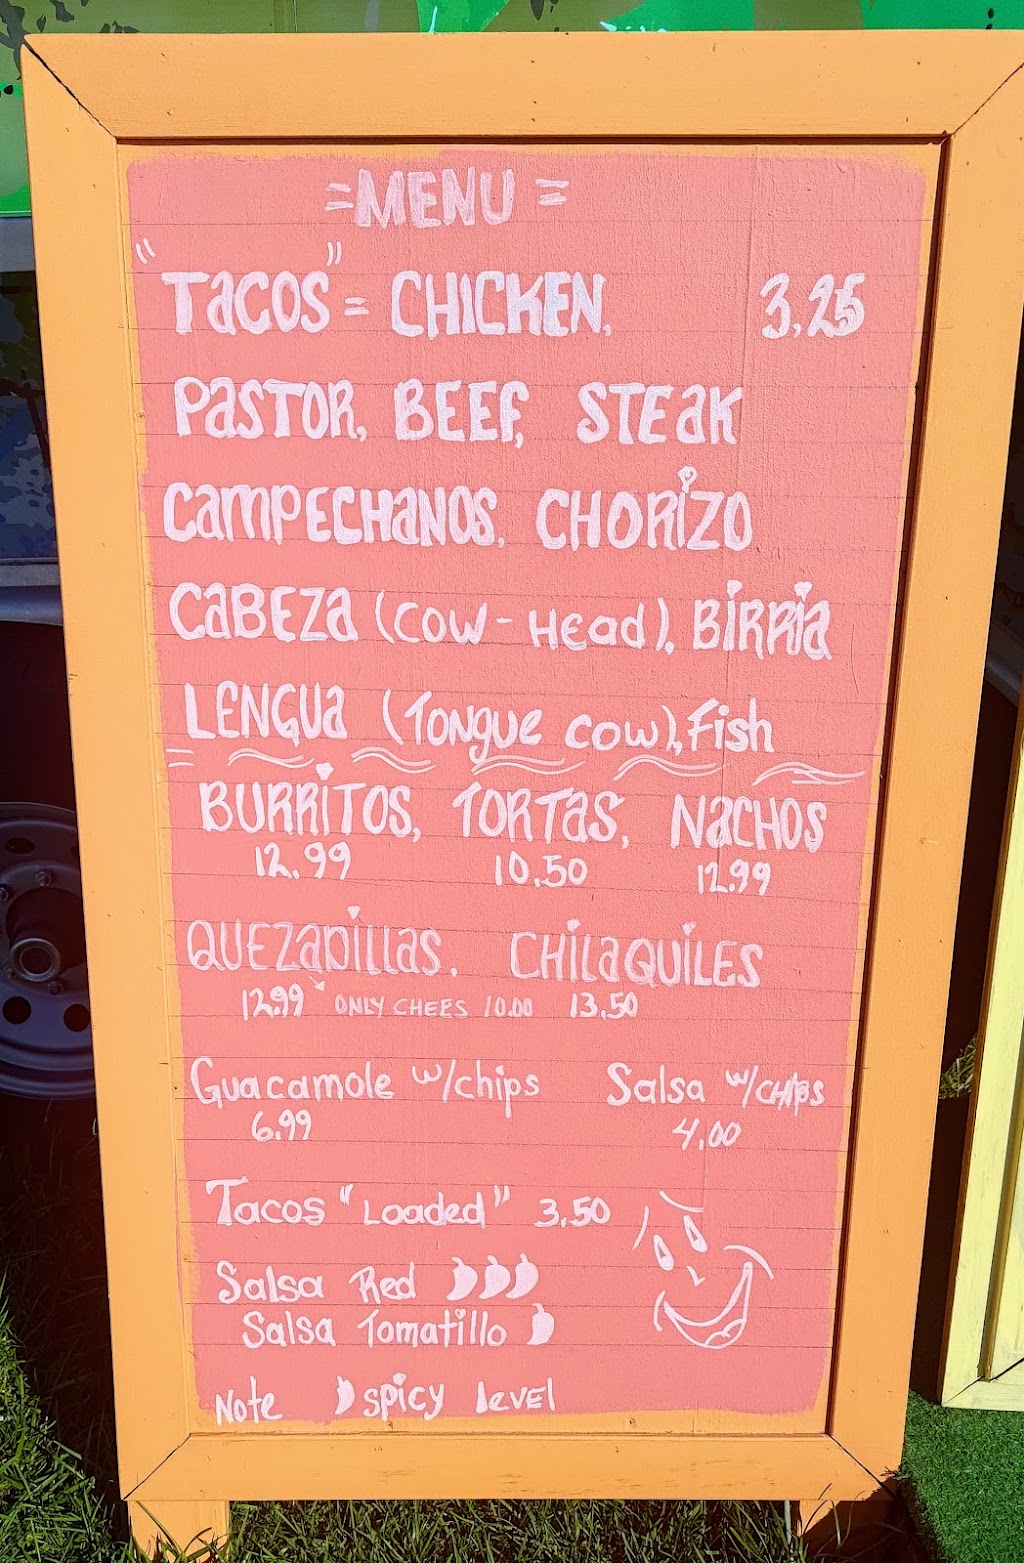 =MENU=
"TACOS" = CHICKEN, 3,25
PASTOR, BEEF, STEAK
CAMPECHANOS, CHORIZO
CABEZA (COW-HEAD), BIRRIA
LENGUA (TONGUE COW), Fish
BURRITOS, TORTAS, NACHOS
12.99 10.50 12.99
QUEZADILLAS, CHILAQUILES
12.99 ONLY CHEES 10.00 13,50
Guacamole w/chips Salsa w/CHIPS
6.99 4,00
Tacos "Loaded" 3,50
Salsa Red
Salsa Tomatillo
Note spicy Level